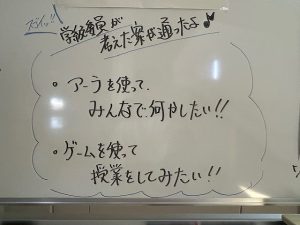 学級委員が
考えた案が通ったよ♪
・アーラを使って、
みんなで何かしたい!!
・ゲームを使って
授業をしてみたい!!